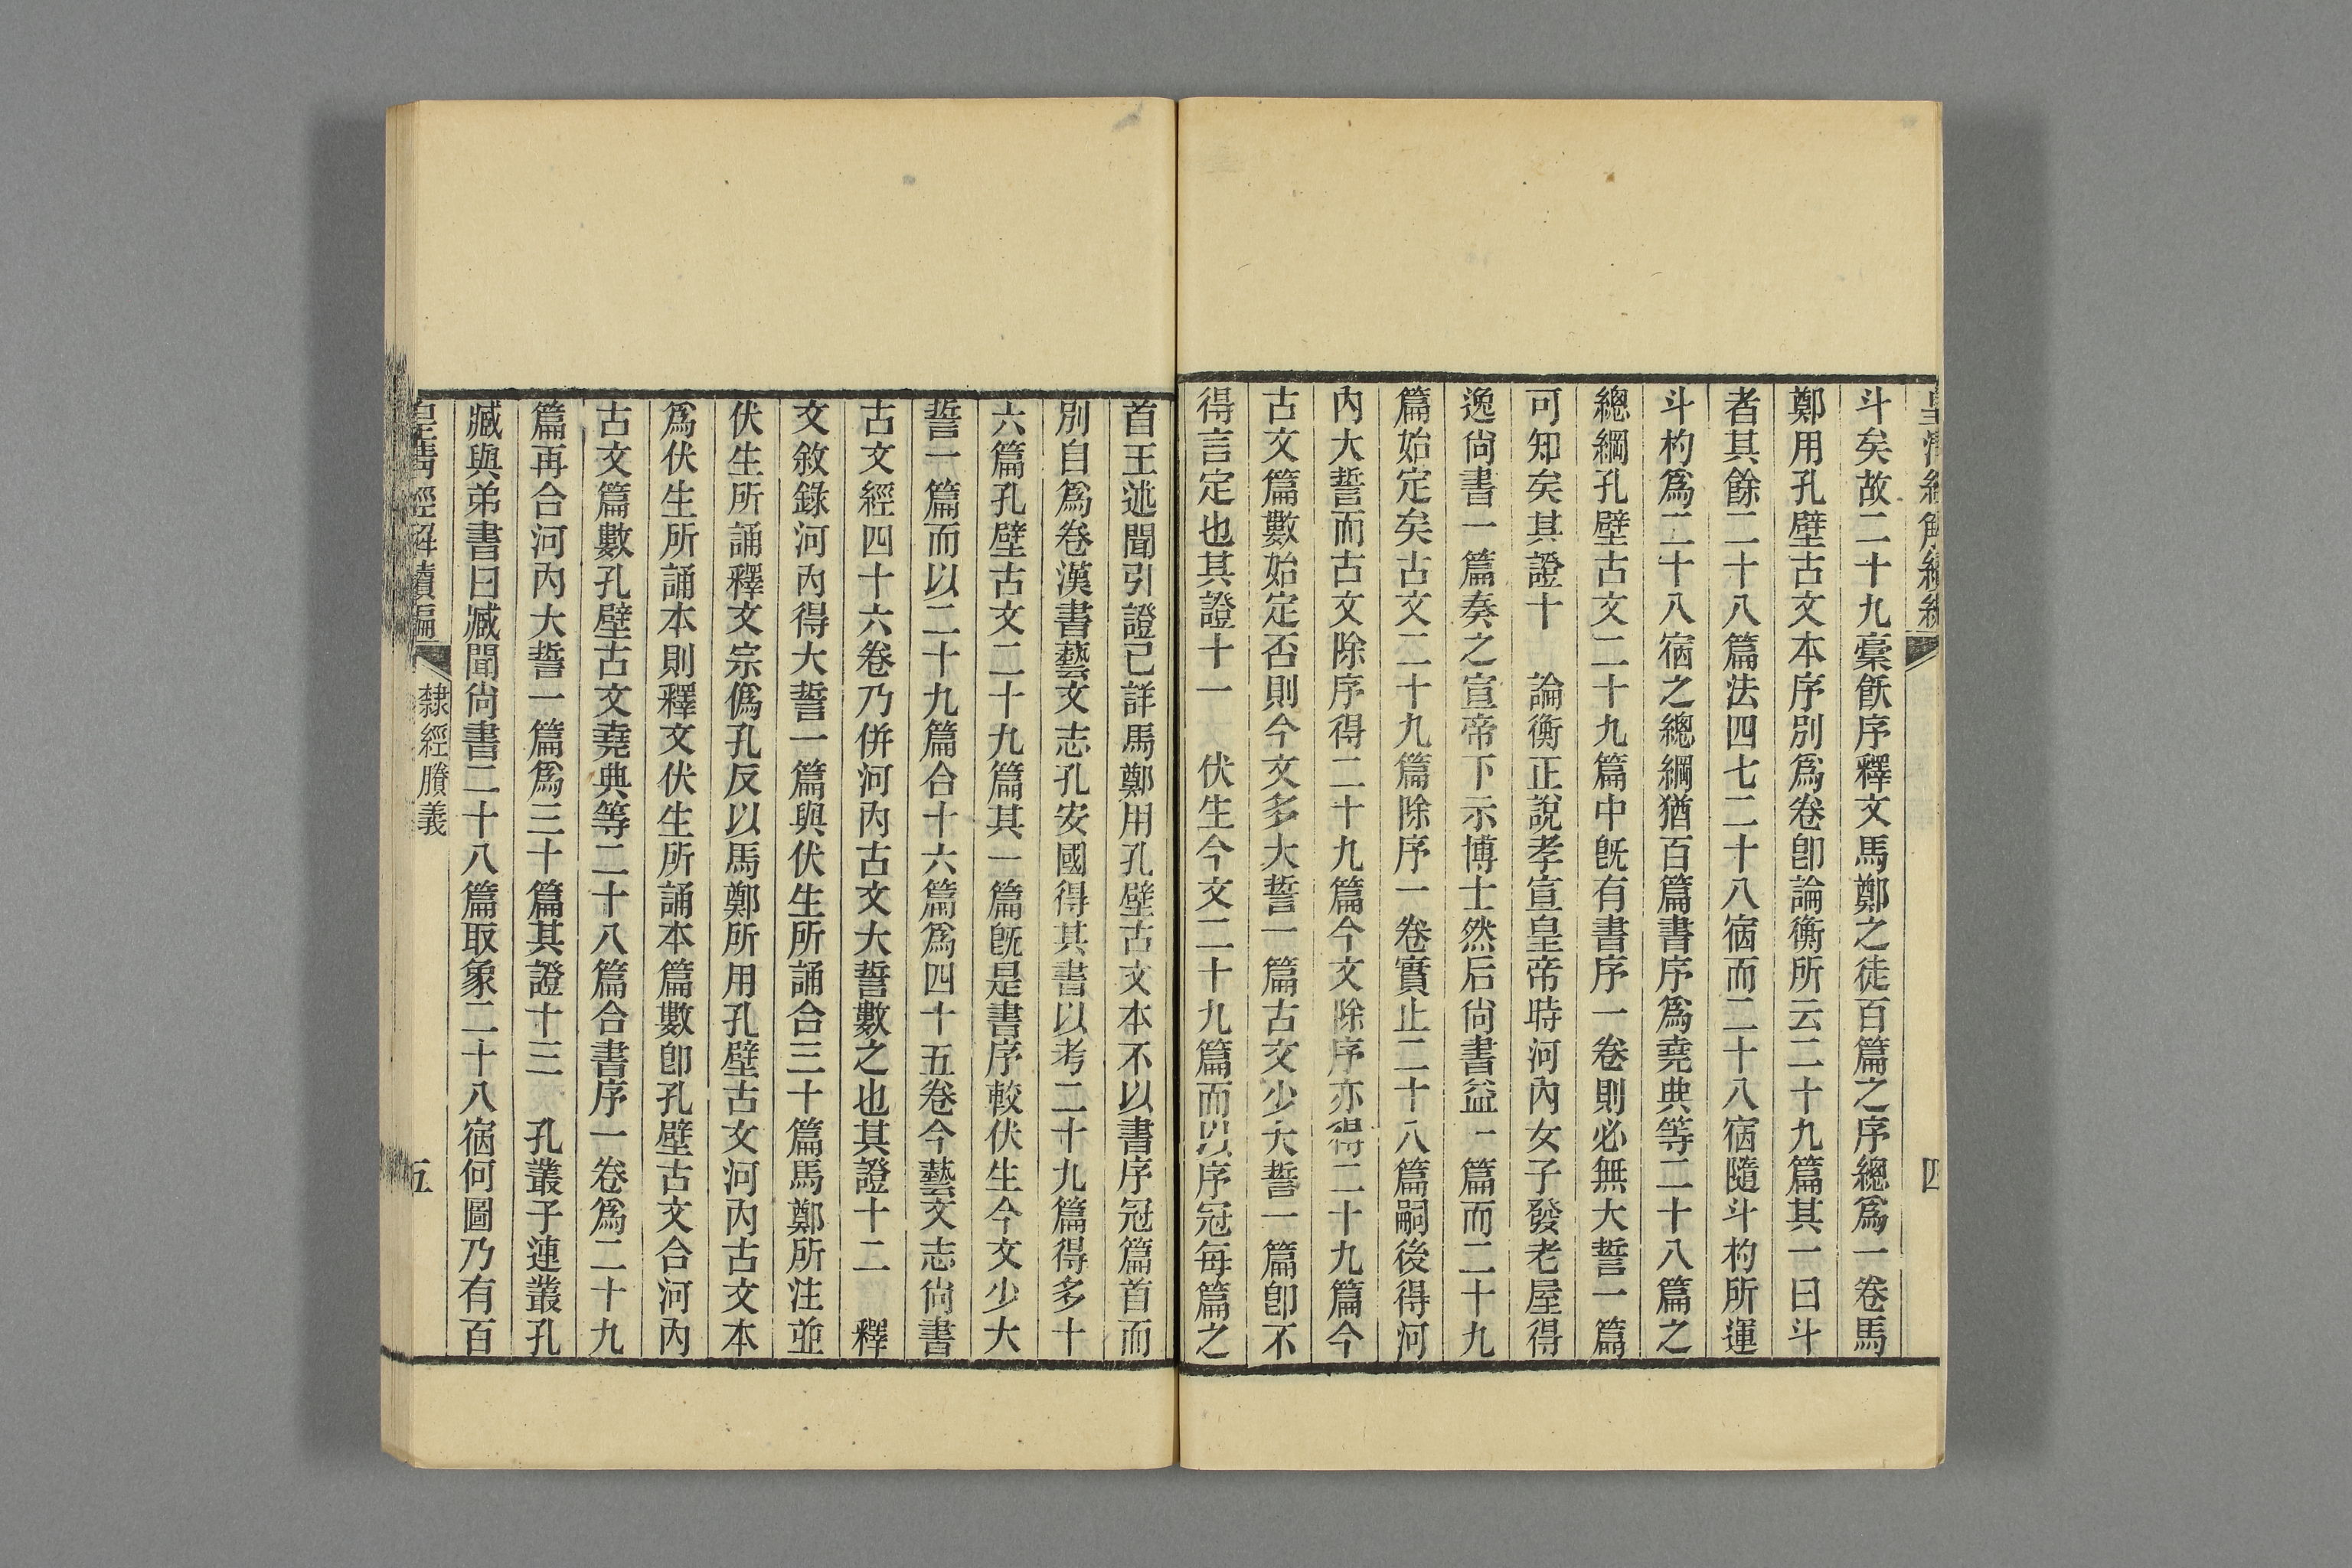 皇清經解續編 四
斗矣故二十九㯱飫序釋文馬鄭之徒百篇之序總爲一卷馬
鄭用孔壁古文本序別爲卷卽論衡所云二十九篇其一曰斗
者其餘二十八篇法四七二十八宿而二十八宿隨斗杓所運
斗杓爲二十八宿之總綱猶百篇書序爲堯典等二十八篇之
總綱孔壁古文二十九篇中旣有書序一卷則必無大誓一篇
可知矣其證十　論衡正說孝宣皇帝時河內女子發老屋得
逸尙書一篇奏之宣帝下示博士然后尙書益一篇而二十九
篇始定矣古文二十九篇除序一卷實止二十八篇嗣後得河
內大誓而古文除序得二十九篇今文除序亦得二十九篇今
古文篇數始定否則今文多大誓一篇古文少大誓一篇卽不
得言定也其證十一　伏生今文二十九篇而以序冠每篇之
首王述聞引證已詳馬鄭用孔壁古文本不以書序冠篇首而
別自爲卷漢書藝文志孔安國得其書以考二十九篇得多十
六篇孔壁古文二十九篇其一篇旣是書序較伏生今文少大
誓一篇而以二十九篇合十六篇爲四十五卷今藝文志尙書
古文經四十六卷乃併河內古文大誓數之也其證十二　釋
文敘錄河內得大誓一篇與伏生所誦合三十篇馬鄭所注並
伏生所誦釋文宗僞孔反以馬鄭所用孔壁古文河內古文本
爲伏生所誦本則釋文伏生所誦本篇數卽孔壁古文合河內
古文篇數孔壁古文堯典等二十八篇合書序一卷爲二十九
篇再合河內大誓一篇爲三十篇其證十三　孔叢子連叢孔
臧與弟書曰臧聞尙書二十八篇取象二十八宿何圖乃有百
皇清經解續編 隸經賸義 五